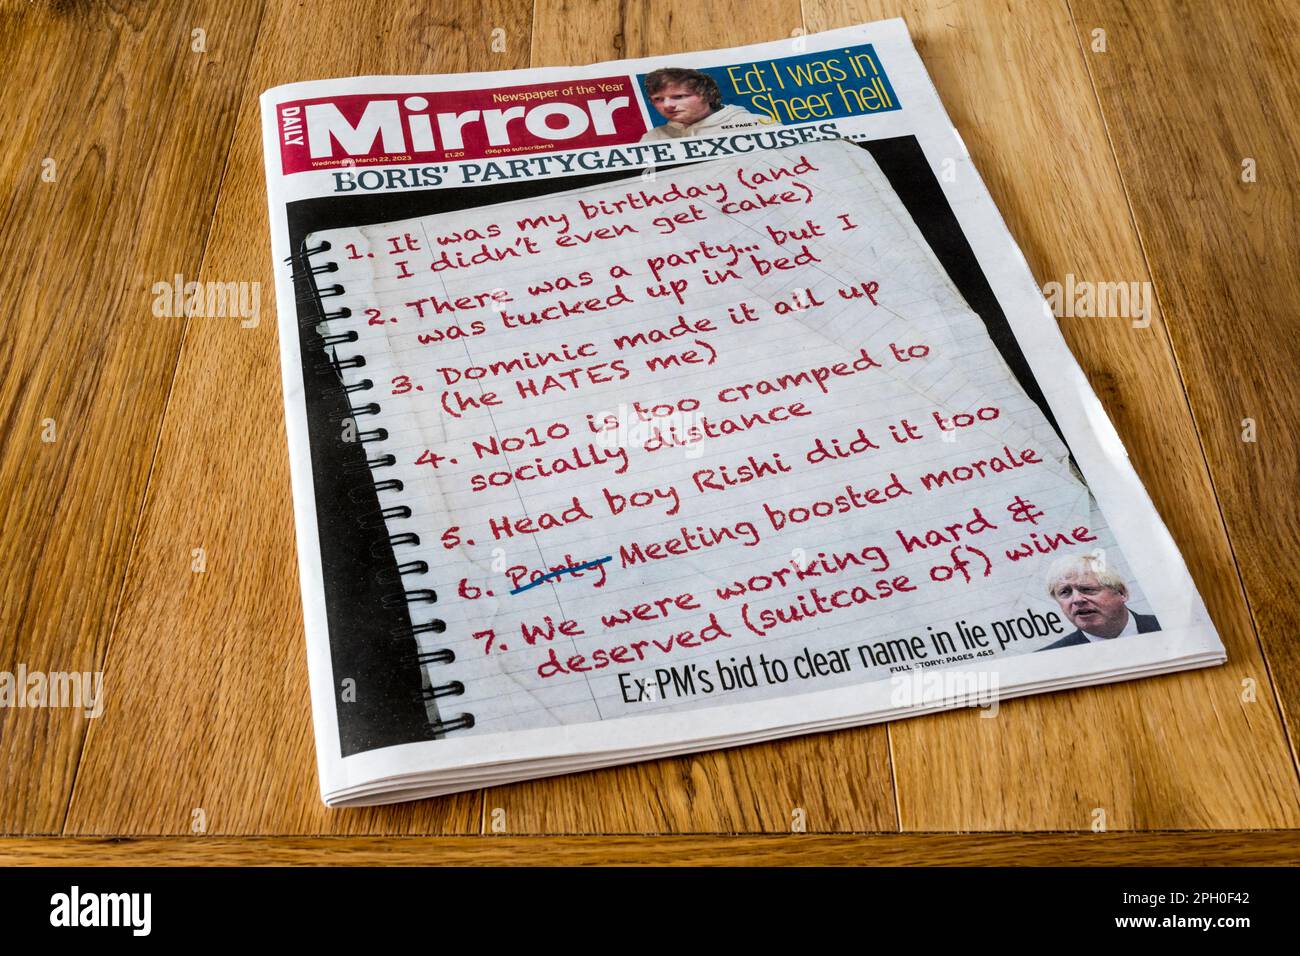 DAILY
Mirror
Newspaper of the Year
Wednesday, March 22, 2023 £1.20 (96p to subscribers)
Ed: I was in
Sheer hell
SEE PAGE 7
BORIS' PARTYGATE EXCUSES...
1. It was my birthday (and
I didn't even get cake)
2. There was a party... but I
was tucked up in bed
3. Dominic made it all up
(he HATES me)
4. No10 is too cramped to
socially distance
5. Head boy Rishi did it too
6. Party Meeting boosted morale
7. We were working hard &
deserved (suitcase of) wine
Ex-PM's bid to clear name in lie probe
FULL STORY: PAGES 4&5
alamy
Image ID: 2PH0F42
www.alamy.com